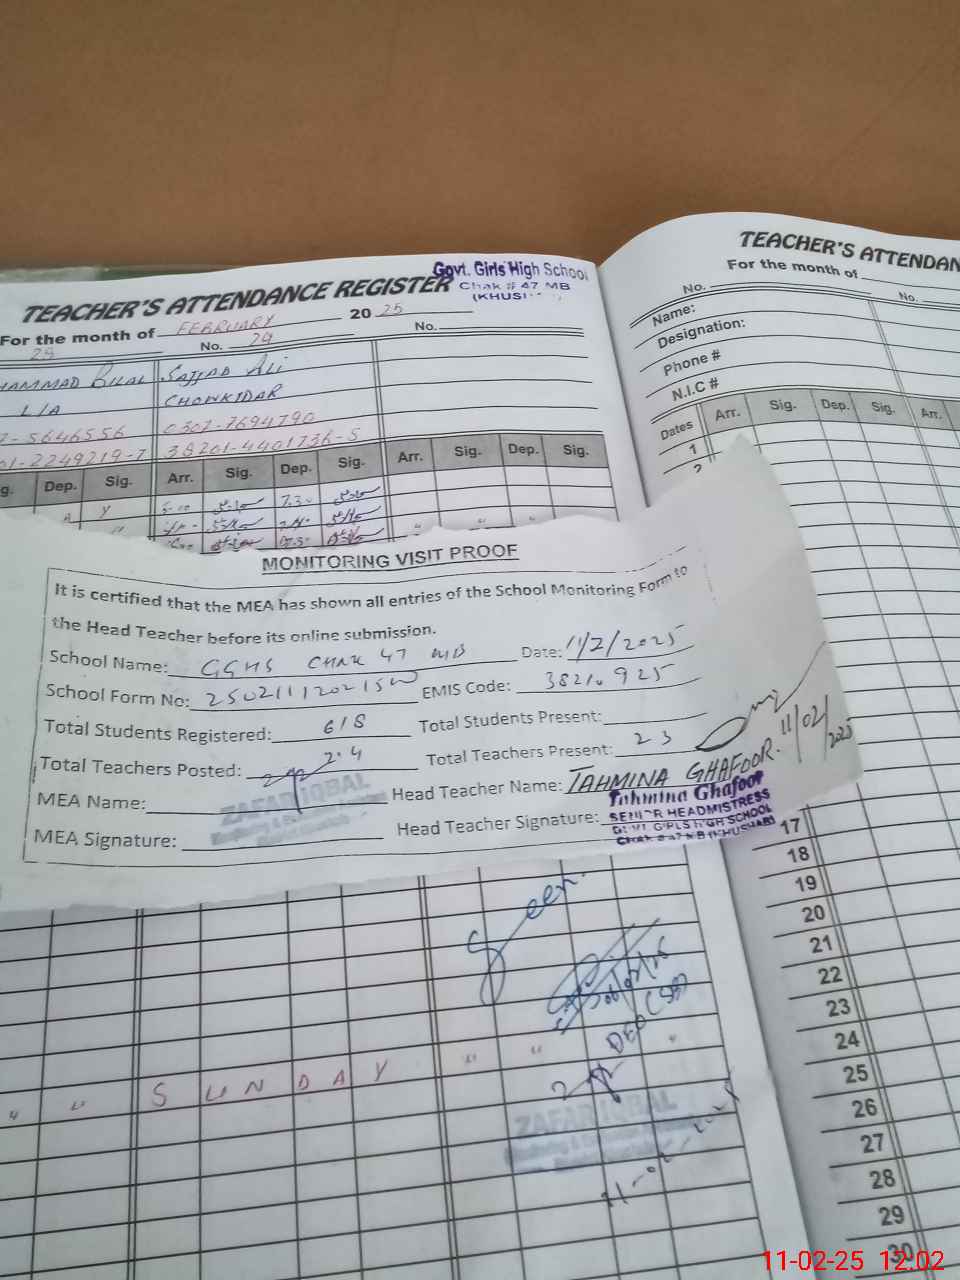 Govt. Girls High School
Chak # 47 MB
TEACHER'S ATTENDANCE REGISTER
For the month of FEBRUARY 2025
No. 29 No.
BILAL SAJJAD ALI
L/A CHOWKIDAR
-5646556 0307-7694790
01-2249219-7 38201-4401736-5
Dep. Sig. Arr. Sig. Dep. Sig. Arr. Sig. Dep. Sig.
TEACHER'S ATTENDAN
For the month of
No. No.
Name:
Designation:
Phone #
N.I.C #
Dates Arr. Sig. Dep. Sig. Arr.
1
2
MONITORING VISIT PROOF
It is certified that the MEA has shown all entries of the School Monitoring Form to
the Head Teacher before its online submission.
School Name: GGHS CHAK 47 MB Date: 11/2/2025
School Form No: EMIS Code: 38210925
Total Students Registered: 618 Total Students Present:
Total Teachers Posted: 24 Total Teachers Present: 23
MEA Name: ZAFAR IQBAL Head Teacher Name: TAHMINA GHAFOOR. 11/02/2025
MEA Signature: Head Teacher Signature:
Tahmina Ghafoor
SENIOR HEADMISTRESS
GOVT. GIRLS HIGH SCHOOL
Chak # 47 MB (KHUSHAB)
17
18
19
20
21
22
23
24
25
26
27
28
29
30
Seen.
DEO (SE)
SUNDAY
ZAFAR IQBAL
11-02-25 12:02